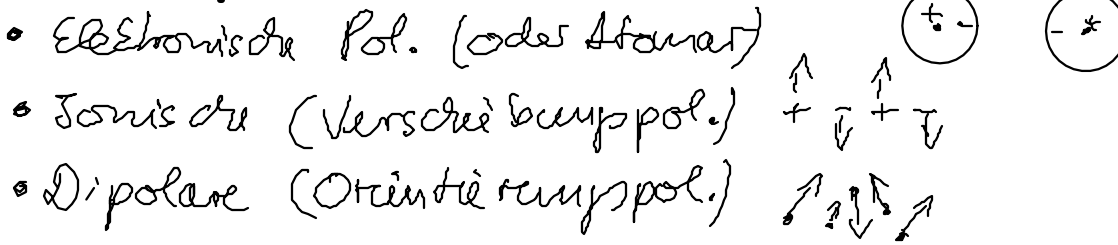 • Elektronische Pol. (oder Atomar)
• Ionische (Verschiebungspol.) + - + -
• Dipolare (Orientierungspol.)